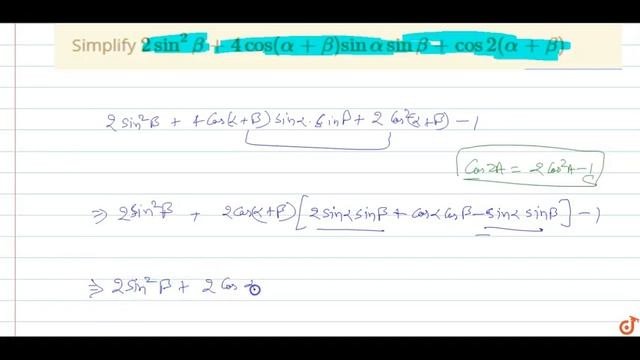 Simplify 2 sin² β + 4 cos(α + β) sin α sin β + cos 2(α + β)
2 Sin²β + 4 Cos(α+β) Sinα. SinB + 2 Cos²(α+β) - 1
Cos2A = 2Cos²A-1
⇒ 2Sin²β + 2Cos(α+β) [2Sinα SinB + CosαCosB - Sinα SinB] - 1
⇒ 2Sin²β + 2 Cos